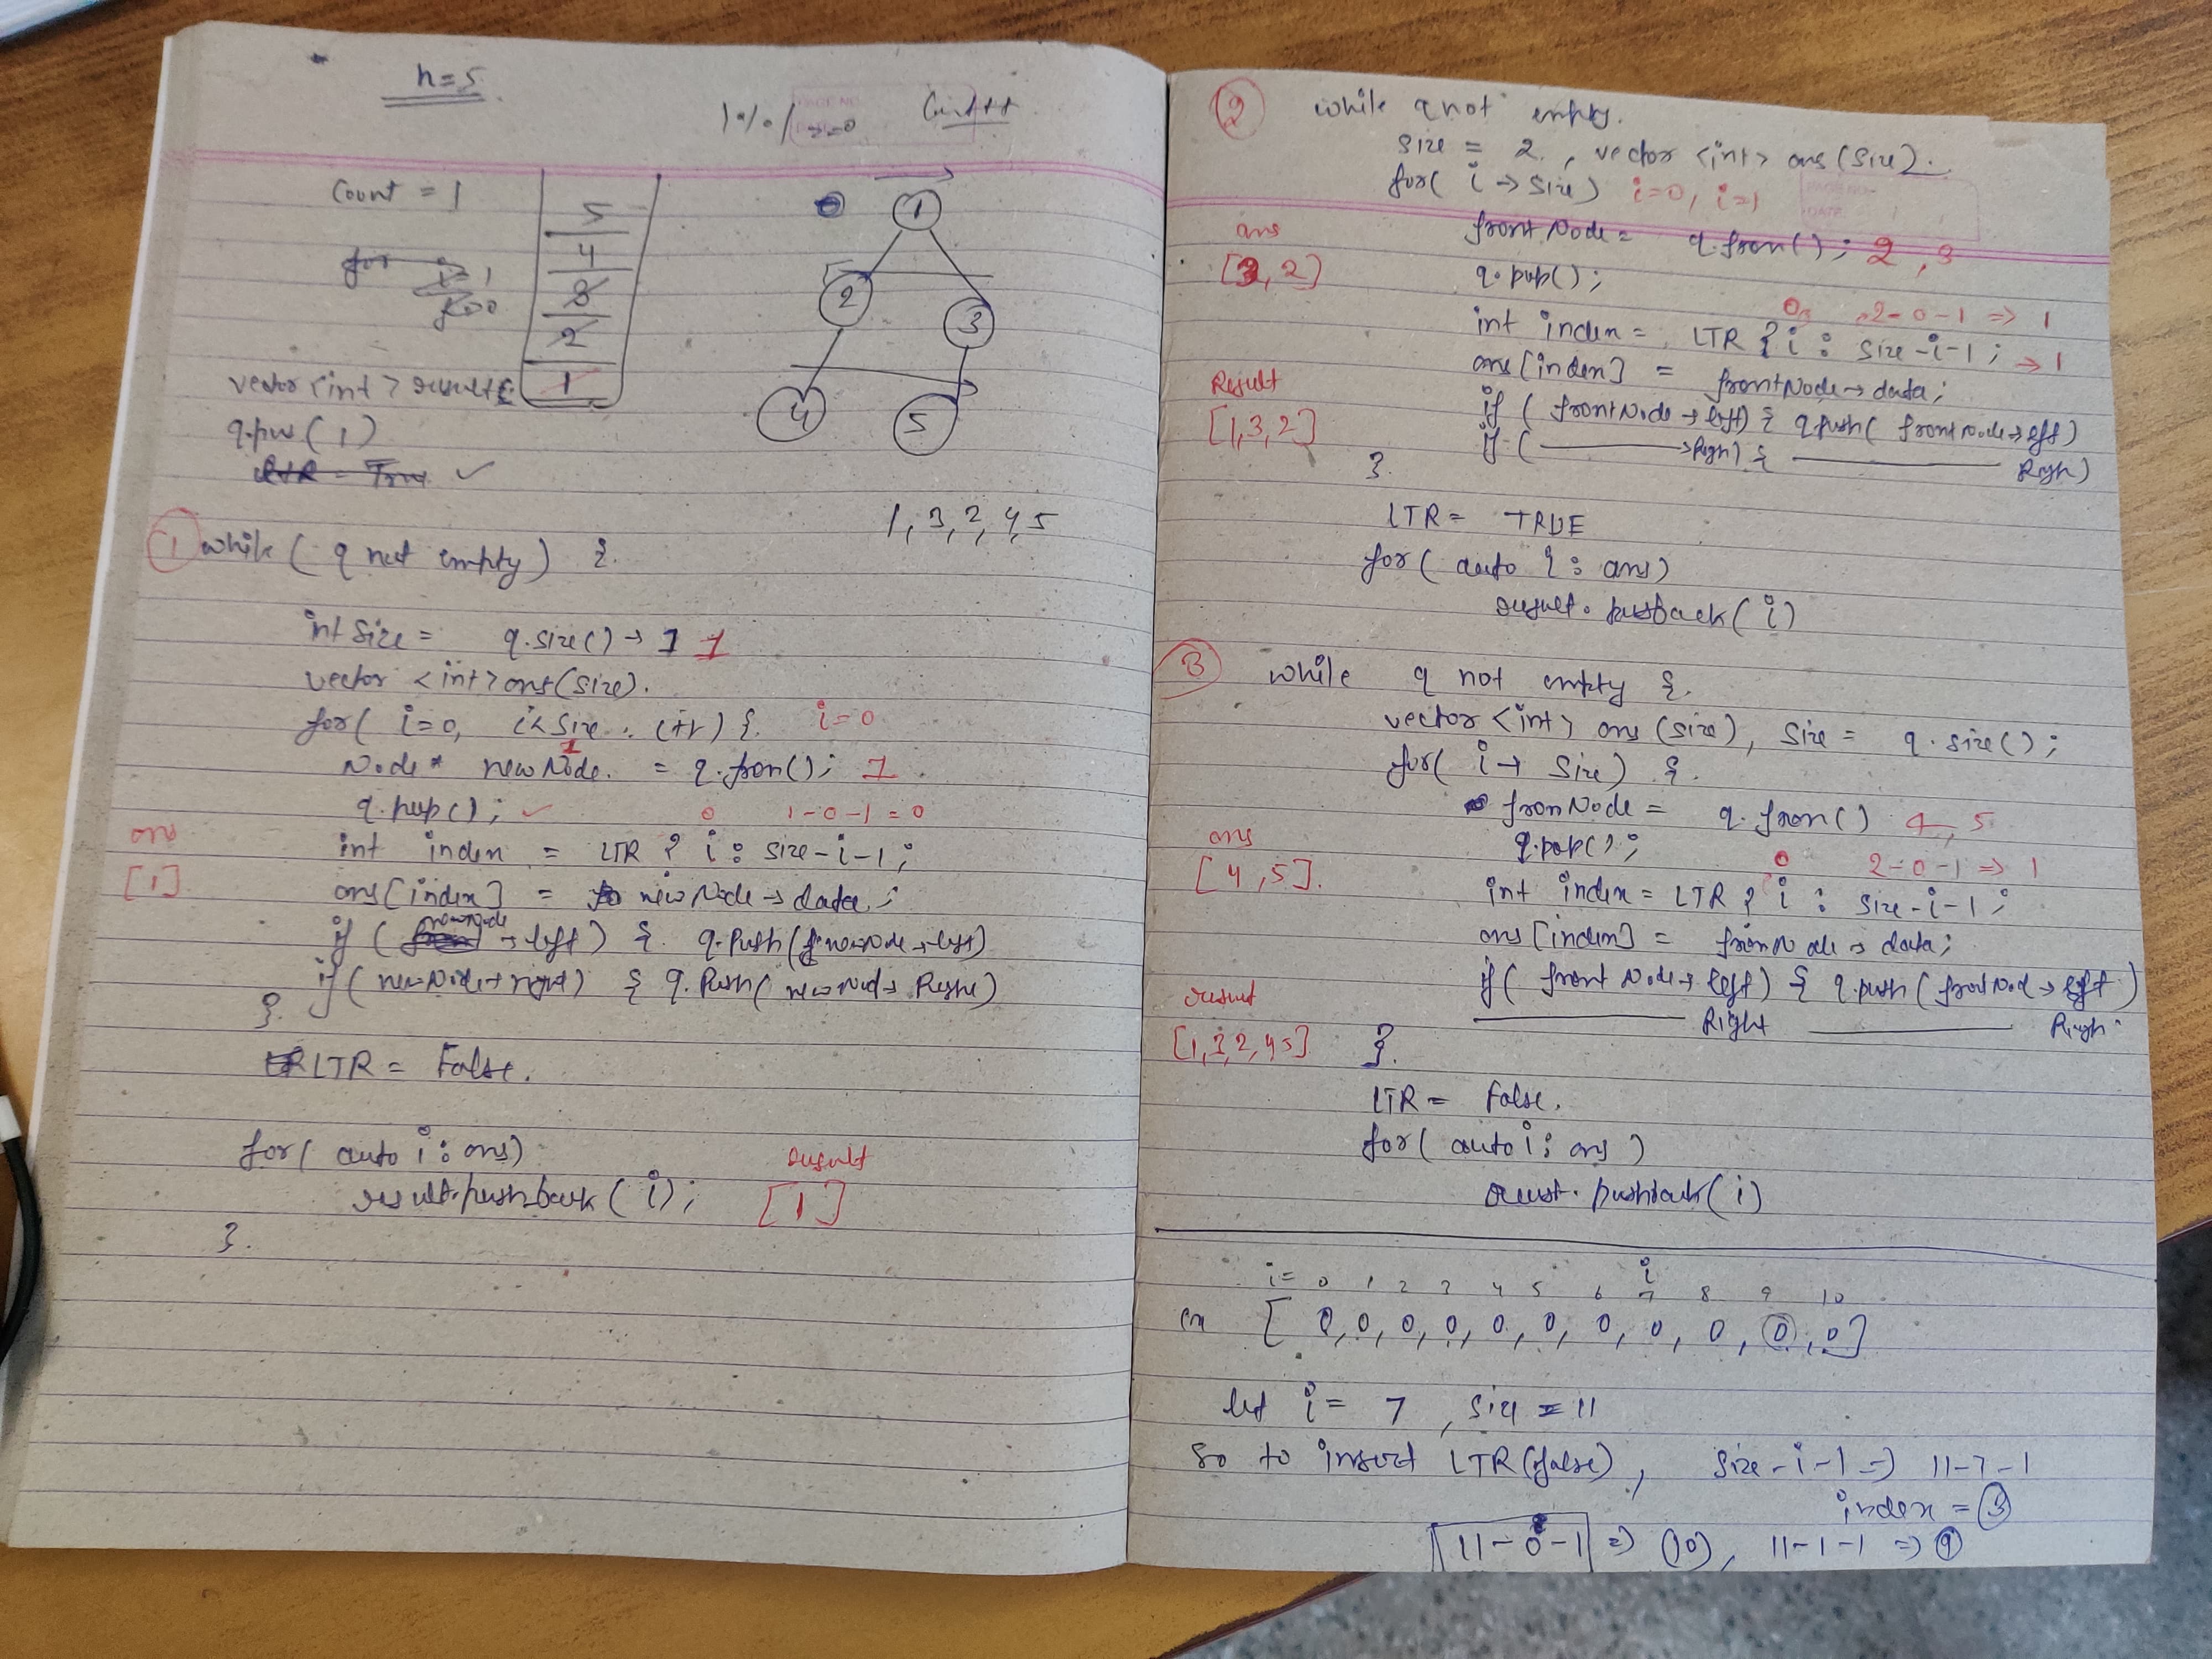 n=5
1%1==0
Count++
Count = 1
for i=1
5
4
3
2
1
1
2
3
4
5
vector<int> result;
q.pus(1)
LTR = True ✓
1, 3, 2, 4, 5
① while( q not empty) {
int size = q.size() → 1 1
vector <int> ans(size).
for( i=0, i<size ; i++) { i=0
1
Node* newNode. = q.fron(); 1
q.pop(); ✓
0 1-0-1=0
ans
[1]
int index = LTR ? i : size-i-1;
ans[index] = newNode→data;
newNode
if ( →left) { q.push(newNode→left)
if( newNode→right) { q.Push( newNode→Right)
}
LTR = False.
for( auto i : ans)
result.pushback( i);
result
[1]
}
② while q not empty.
size = 2, vector <int> ans(size).
for( i → size) i=0, i=1
PAGE NO.
DATE
ans
[3,2]
frontNode = q.fron(); 2, 3
q.pop();
0, 2-0-1 ⇒ 1
int index = LTR ? i : size-i-1; → 1
ans[index] = frontNode→data;
Result
[1,3,2]
if ( frontNode→left) { q.push( frontNode→left)
if ( ——→Righ) { —— Righ)
}
LTR = TRUE
for( auto i : ans)
result. pusback( i)
③ while q not empty {.
vector <int> ans (size), size = q.size();
for( i → size) {.
fronNode = q.fron() 4, 5
q.pop();
0 2-0-1 ⇒ 1
ans
[4,5].
int index = LTR ? i : size-i-1;
ans[index] = fronNode→data;
if( frontNode→left) { q.push( frontNod→left)
—— Right —— Righ.
result
[1,3,2,4 5]
}.
LTR = False.
for( auto i : ans )
resust. pushback( i)
i
i= 0 1 2 3 4 5 6 7 8 9 10
en [ 0, 0, 0, 0, 0, 0, 0, 0, 0, 0, 0]
let i = 7, size = 11
So to insert LTR(false), size-i-1 ⇒ 11-7-1
index = 3
11-0-1 ⇒ (10), 11-1-1 ⇒ 9